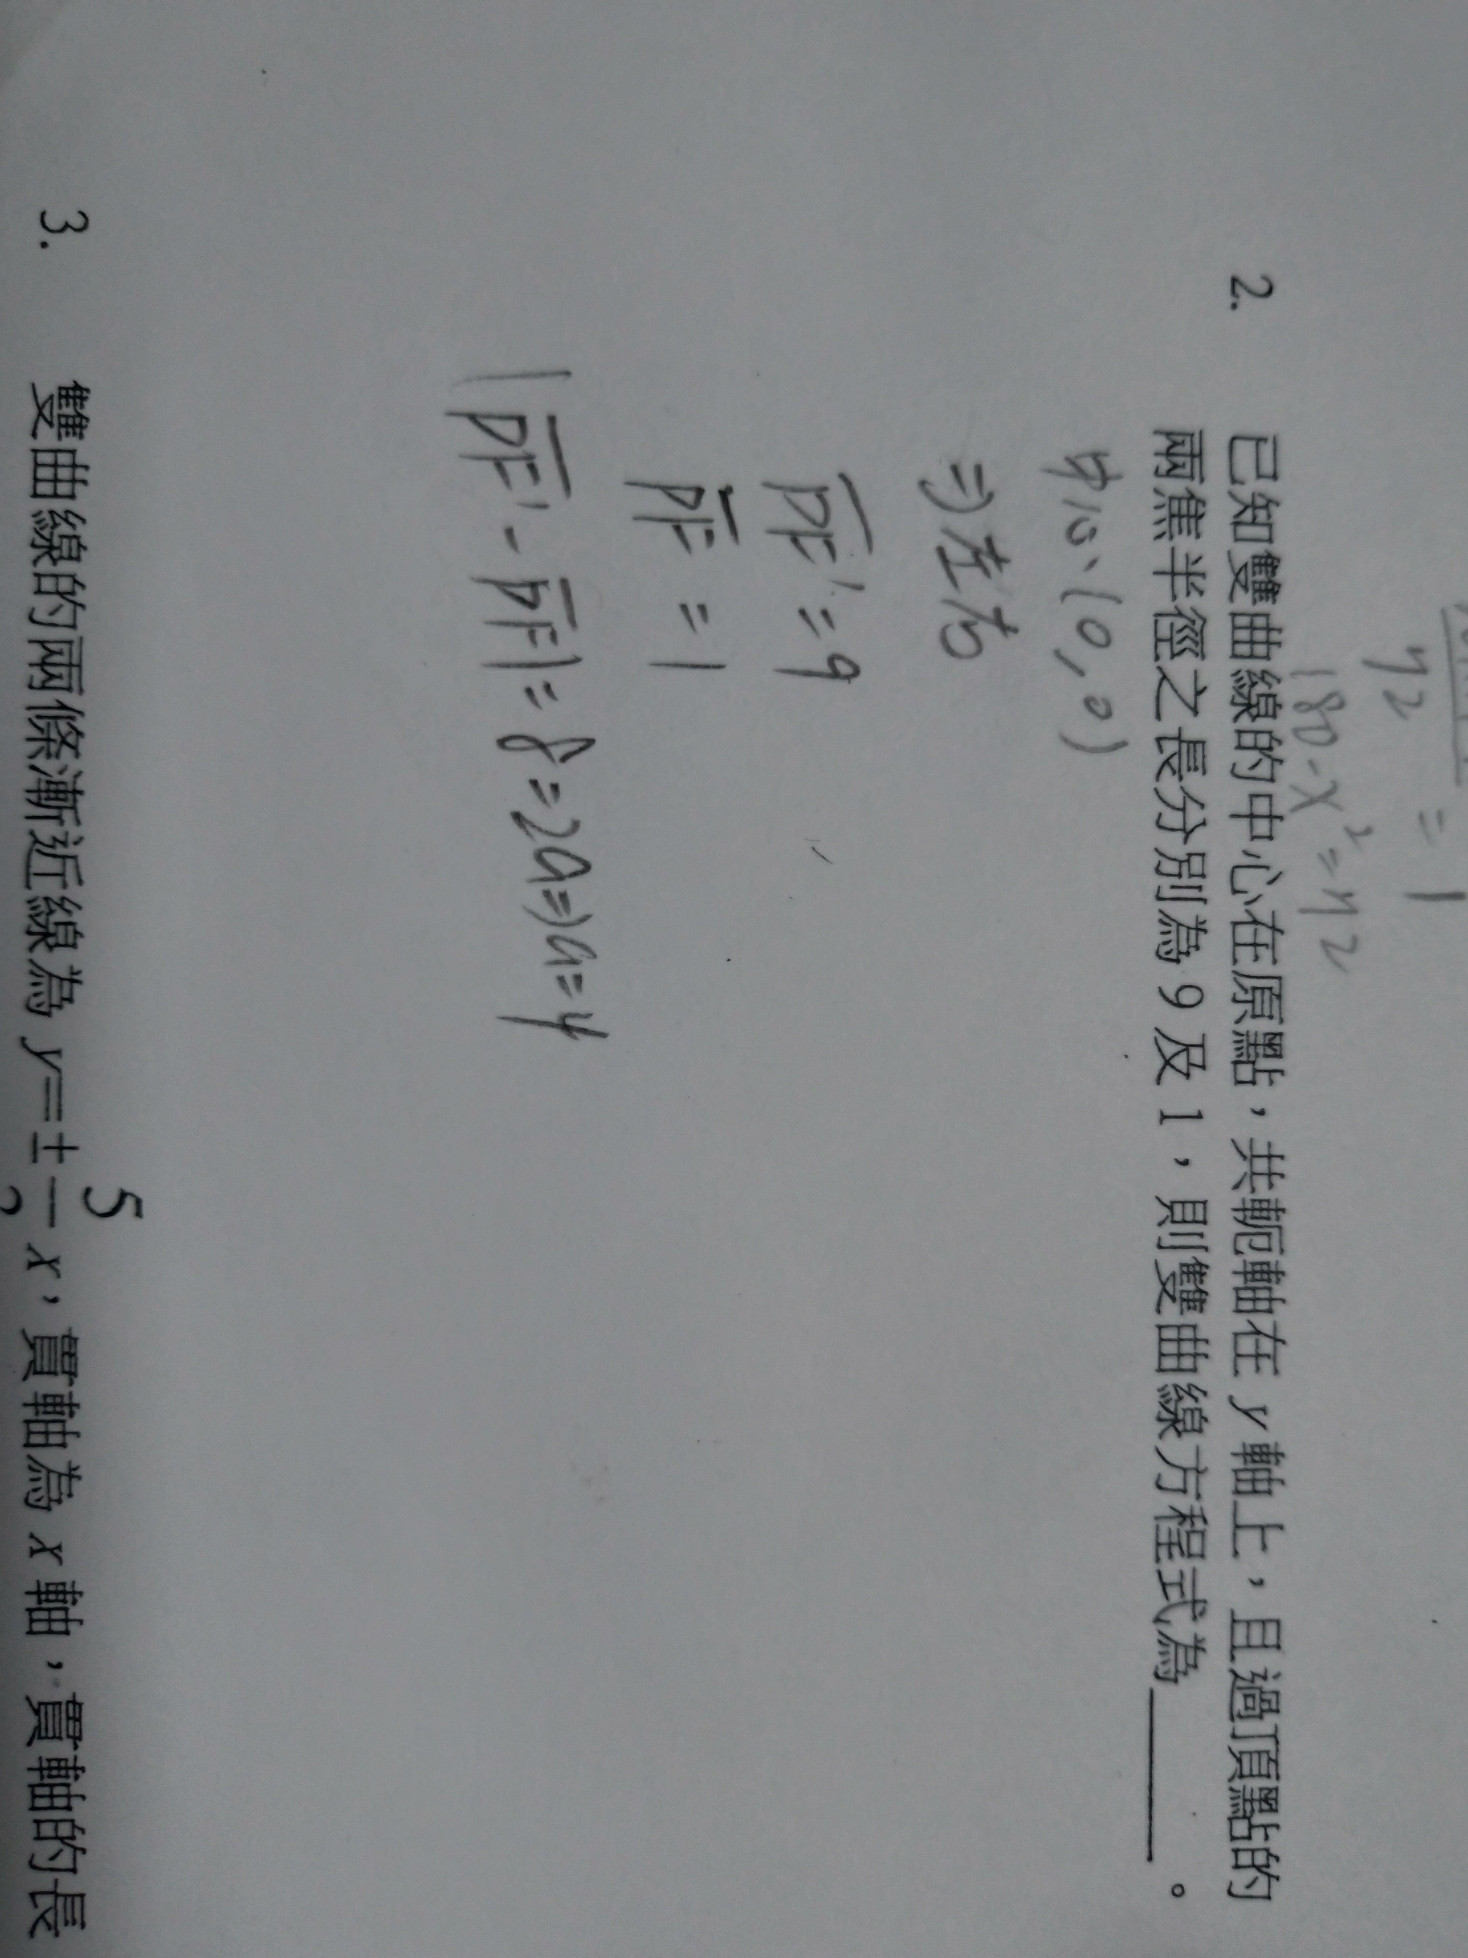 y2 = 1
180-x²=y2
2. 已知雙曲線的中心在原點，共軛軸在 y 軸上，且過頂點的
兩焦半徑之長分別為 9 及 1，則雙曲線方程式為______。
中心(0,0)
⇒左右
PF'=9
PF=1
|PF'-PF|=8=2a⇒a=4
5
3. 雙曲線的兩條漸近線為 y=±— x，貫軸為 x 軸，貫軸的長